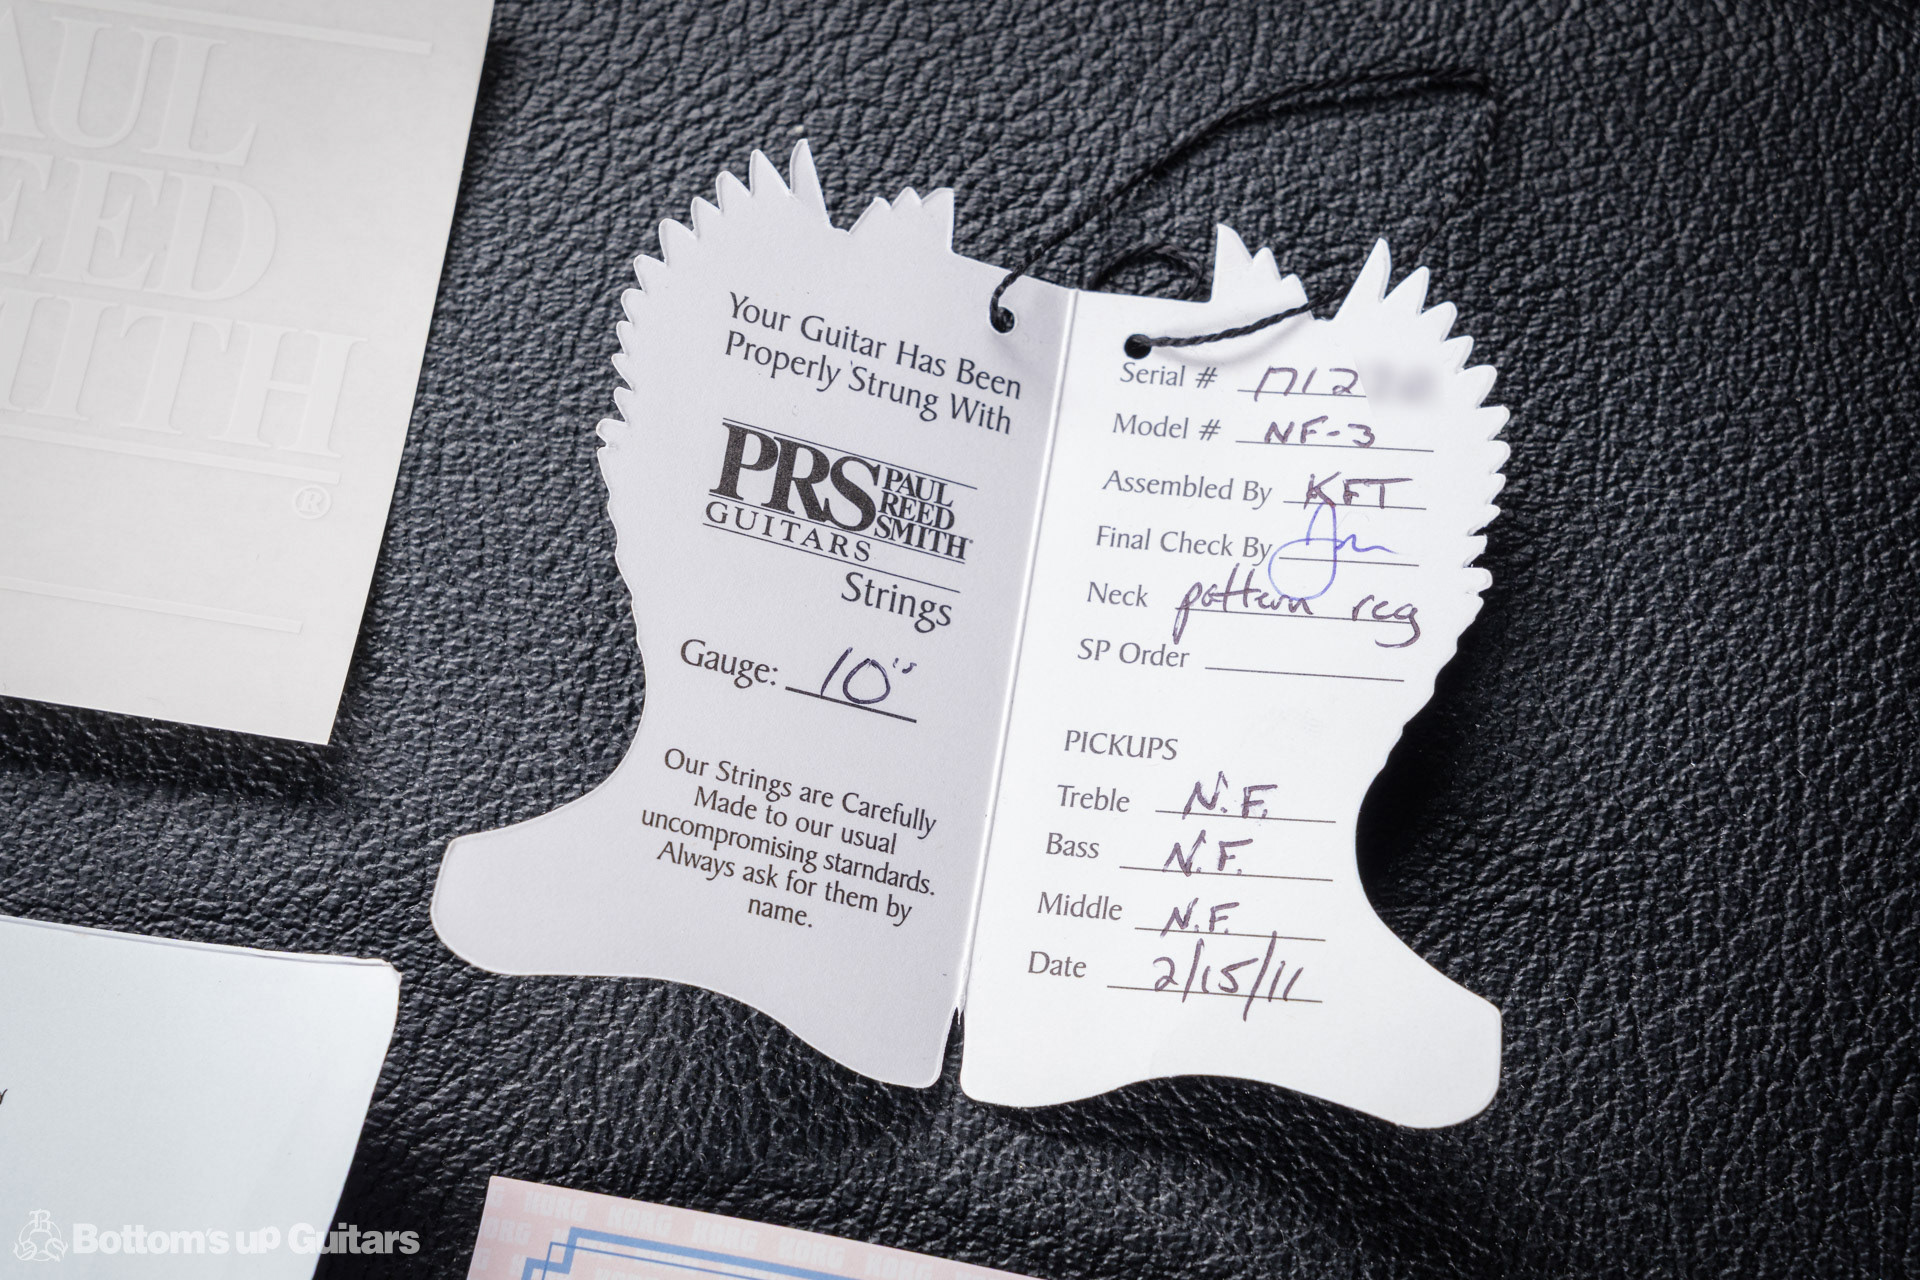 PAUL
REED
SMITH
®
Your Guitar Has Been
Properly Strung With
PRS PAUL
REED
SMITH
GUITARS
Strings
Gauge: 10's
Our Strings are Carefully
Made to our usual
uncompromising starndards.
Always ask for them by
name.
Serial # 1712
Model # NF-3
Assembled By KFT
Final Check By
Neck pattern reg
SP Order
PICKUPS
Treble N.F.
Bass N.F.
Middle N.F.
Date 2/15/11
KORG KORG KORG KORG
KORG
Bottom's up Guitars